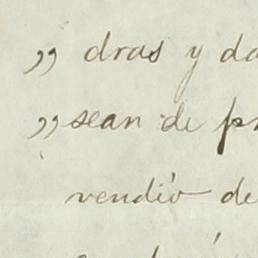 „ dras y da
„ sean de pr
vendió de